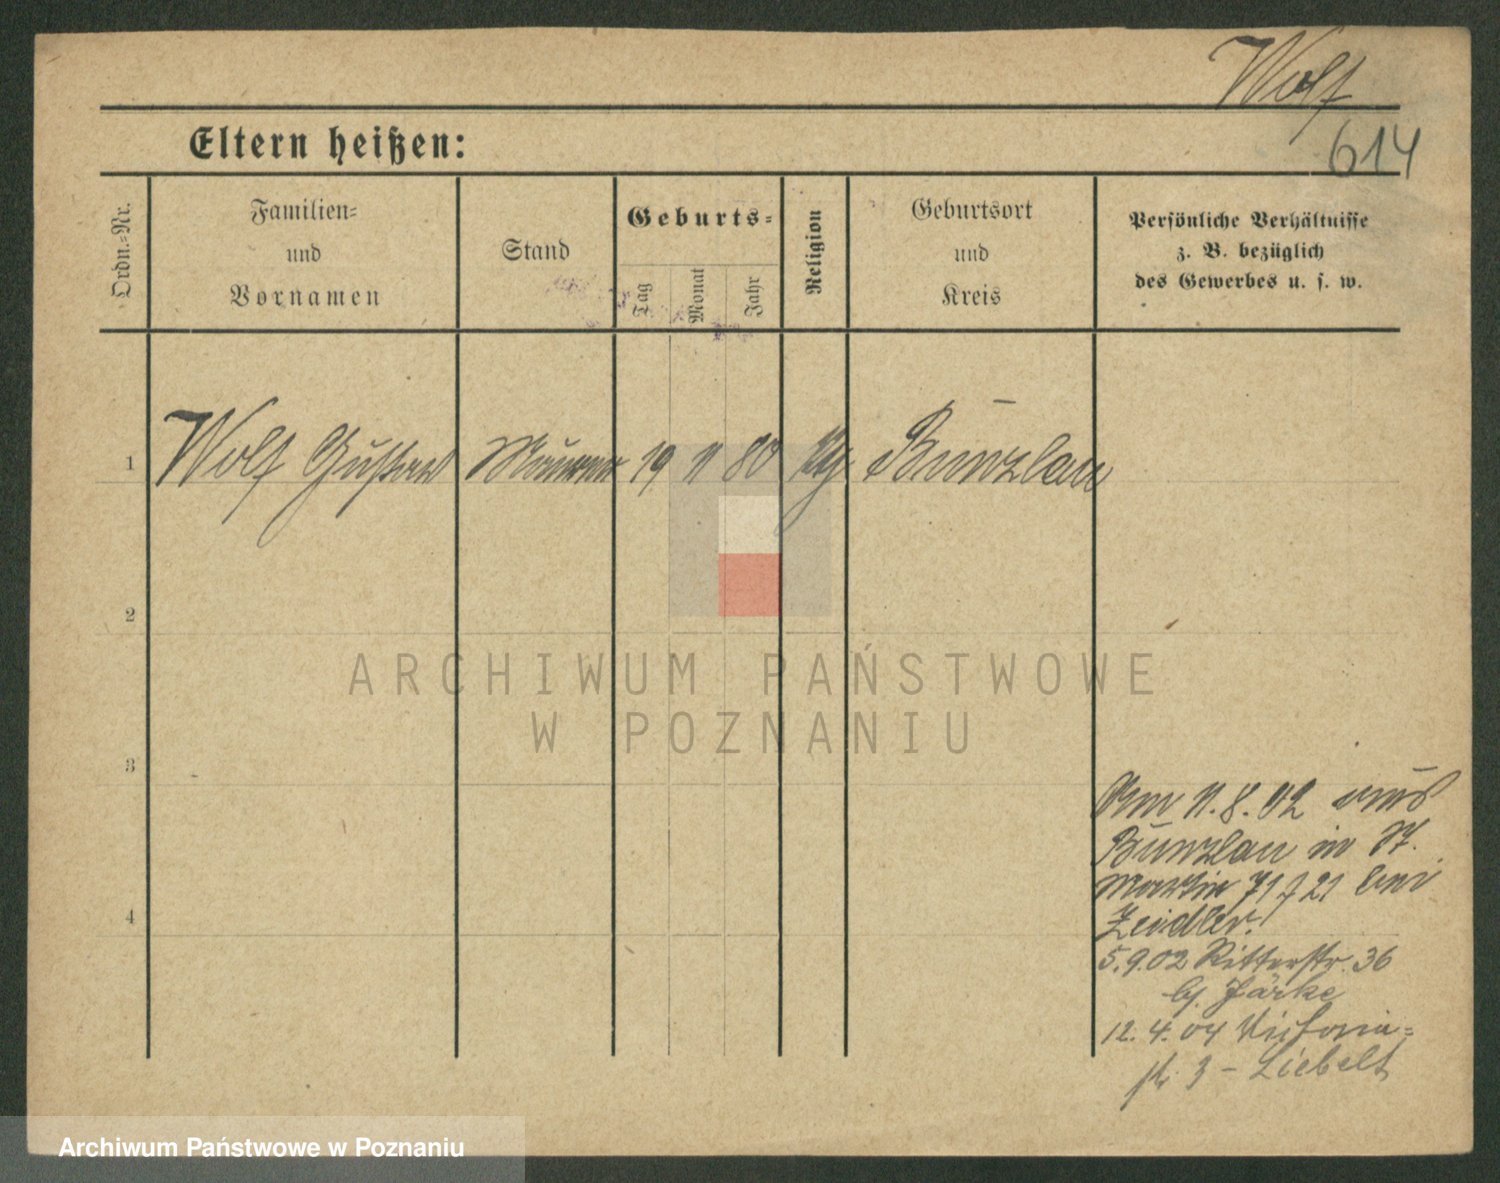 Wolf
614
Eltern heißen:
Ordn.-Nr.
Familien-
und
Vornamen
Stand
Geburts-
Tag
Monat
Jahr
Religion
Geburtsort
und
Kreis
Persönliche Verhältnisse
z. B. bezüglich
des Gewerbes u. s. w.
1 Wolf Gustav Maurer 19 11 80 Bunzlau
2
ARCHIWUM PAŃSTWOWE
W POZNANIU
3
4
Am 11.8.02 aus
Bunzlau in St.
Martin 71 / 21 bei
Zeidler.
5.9.02 Ritterstr. 36
b/ Järke
12.4.04 Victoria-
str. 3 - Liebelt
Archiwum Państwowe w Poznaniu